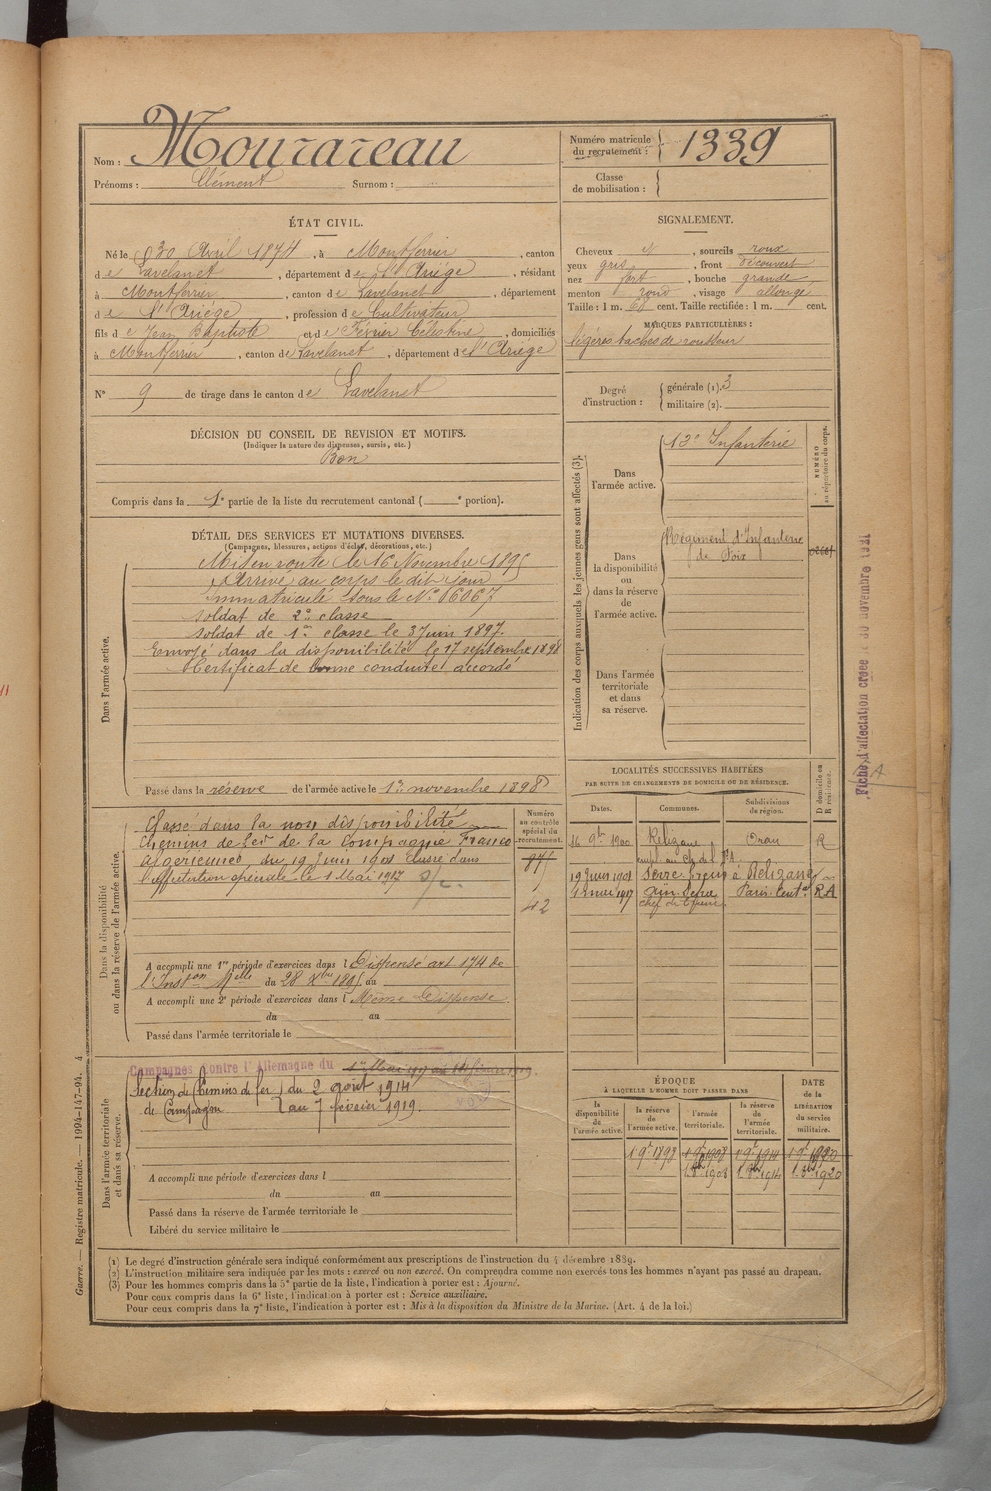 Nom : Mourareau
Prénoms : Clément Surnom :
Numéro matricule
du recrutement : 1339
Classe
de mobilisation :
ÉTAT CIVIL.
Né le 30 Avril 1874, à Montferrier, canton
de Lavelanet, département de l'Ariége, résidant
à Montferrier, canton de Lavelanet, département
de l'Ariége, profession de Cultivateur
fils de Jean Baptiste et de Févrer Célestine, domiciliés
à Montferrier, canton de Lavelanet, département de l'Ariége
N° 9 de tirage dans le canton de Lavelanet
DÉCISION DU CONSEIL DE REVISION ET MOTIFS.
(Indiquer la nature des dispenses, sursis, etc.)
Bon
Compris dans la 1e partie de la liste du recrutement cantonal ( e portion).
SIGNALEMENT.
Cheveux et, sourcils roux
yeux gris, front découvert
nez fort, bouche grande
menton rond, visage allongé
Taille : 1 m. 68 cent. Taille rectifiée : 1 m. cent.
MARQUES PARTICULIÈRES :
légères taches de rousseur
Degré
d'instruction :
générale (1). 3
militaire (2).
DÉTAIL DES SERVICES ET MUTATIONS DIVERSES.
(Campagnes, blessures, actions d'éclat, décorations, etc.)
Dans l'armée active.
Mis en route le 16 Novembre 1895
Arrivé au corps le dit jour
Immatriculé sous le N° 16067
soldat de 2e classe
soldat de 1re classe le 3 juin 1897.
Envoyé dans la disponibilité le 17 septembre 1898
Certificat de bonne conduite accordé
Passé dans la réserve de l'armée active le 1er novembre 1898
Indication des corps auxquels les jeunes gens sont affectés (3).
NUMÉRO
au répertoire du corps.
Dans
l'armée active.
13e Infanterie
Dans
la disponibilité
ou
dans la réserve
de
l'armée active.
Régiment d'Infanterie
de Foix
Dans l'armée
territoriale
et dans
sa réserve.
Fiche d'affectation créée le 30 novembre 1921
A
Dans la disponibilité
ou dans la réserve de l'armée active.
Numéro
au contrôle
spécial du
recrutement.
Classé dans la non disponibilité
Chemins de fer de la Compagnie Franco
algerienne, du 19 Juin 1901 classé dans
l'affectation spéciale le 1 Mai 1917
42
A accompli une 1re période d'exercices dans l Dispensé art 174 de
l'Inston Melle du 28 Xbre 1895 au
A accompli une 2e période d'exercices dans l Même Dispense
du au
Passé dans l'armée territoriale le
LOCALITÉS SUCCESSIVES HABITÉES
PAR SUITE DE CHANGEMENTS DE DOMICILE OU DE RÉSIDENCE.
Dates. Communes. Subdivisions
de région. D domicile ou
R résidence.
16 9bre 1900 Relizane Oran R
19 Juin 1901 à Relizane
1 mai 1917 Ain Sefra Paris Cent. RA
Dans l'armée territoriale
et dans sa réserve.
Campagnes contre l'Allemagne du
Section de Chemins de fer du 2 août 1914
de Campagne au 7 février 1919.
A accompli une période d'exercices dans l
du au
Passé dans la réserve de l'armée territoriale le
Libéré du service militaire le
ÉPOQUE
À LAQUELLE L'HOMME DOIT PASSER DANS
la
disponibilité
de
l'armée active.
la réserve
de
l'armée active.
l'armée
territoriale.
la réserve
de
l'armée
territoriale.
DATE
de la
LIBÉRATION
du service
militaire.
1 9bre 1898 1 9bre 1908 1 9bre 1914 1 9bre 1920
1 8bre 1908 1 8bre 1914 1 8bre 1920
Guerre. — Registre matricule. — 1994-147-94. 4
(1) Le degré d'instruction générale sera indiqué conformément aux prescriptions de l'instruction du 4 décembre 1889.
(2) L'instruction militaire sera indiquée par les mots : exercé ou non exercé. On comprendra comme non exercés tous les hommes n'ayant pas passé au drapeau.
(3) Pour les hommes compris dans la 5e partie de la liste, l'indication à porter est : Ajourné.
Pour ceux compris dans la 6e liste, l'indication à porter est : Service auxiliaire.
Pour ceux compris dans la 7e liste, l'indication à porter est : Mis à la disposition du Ministre de la Marine. (Art. 4 de la loi.)